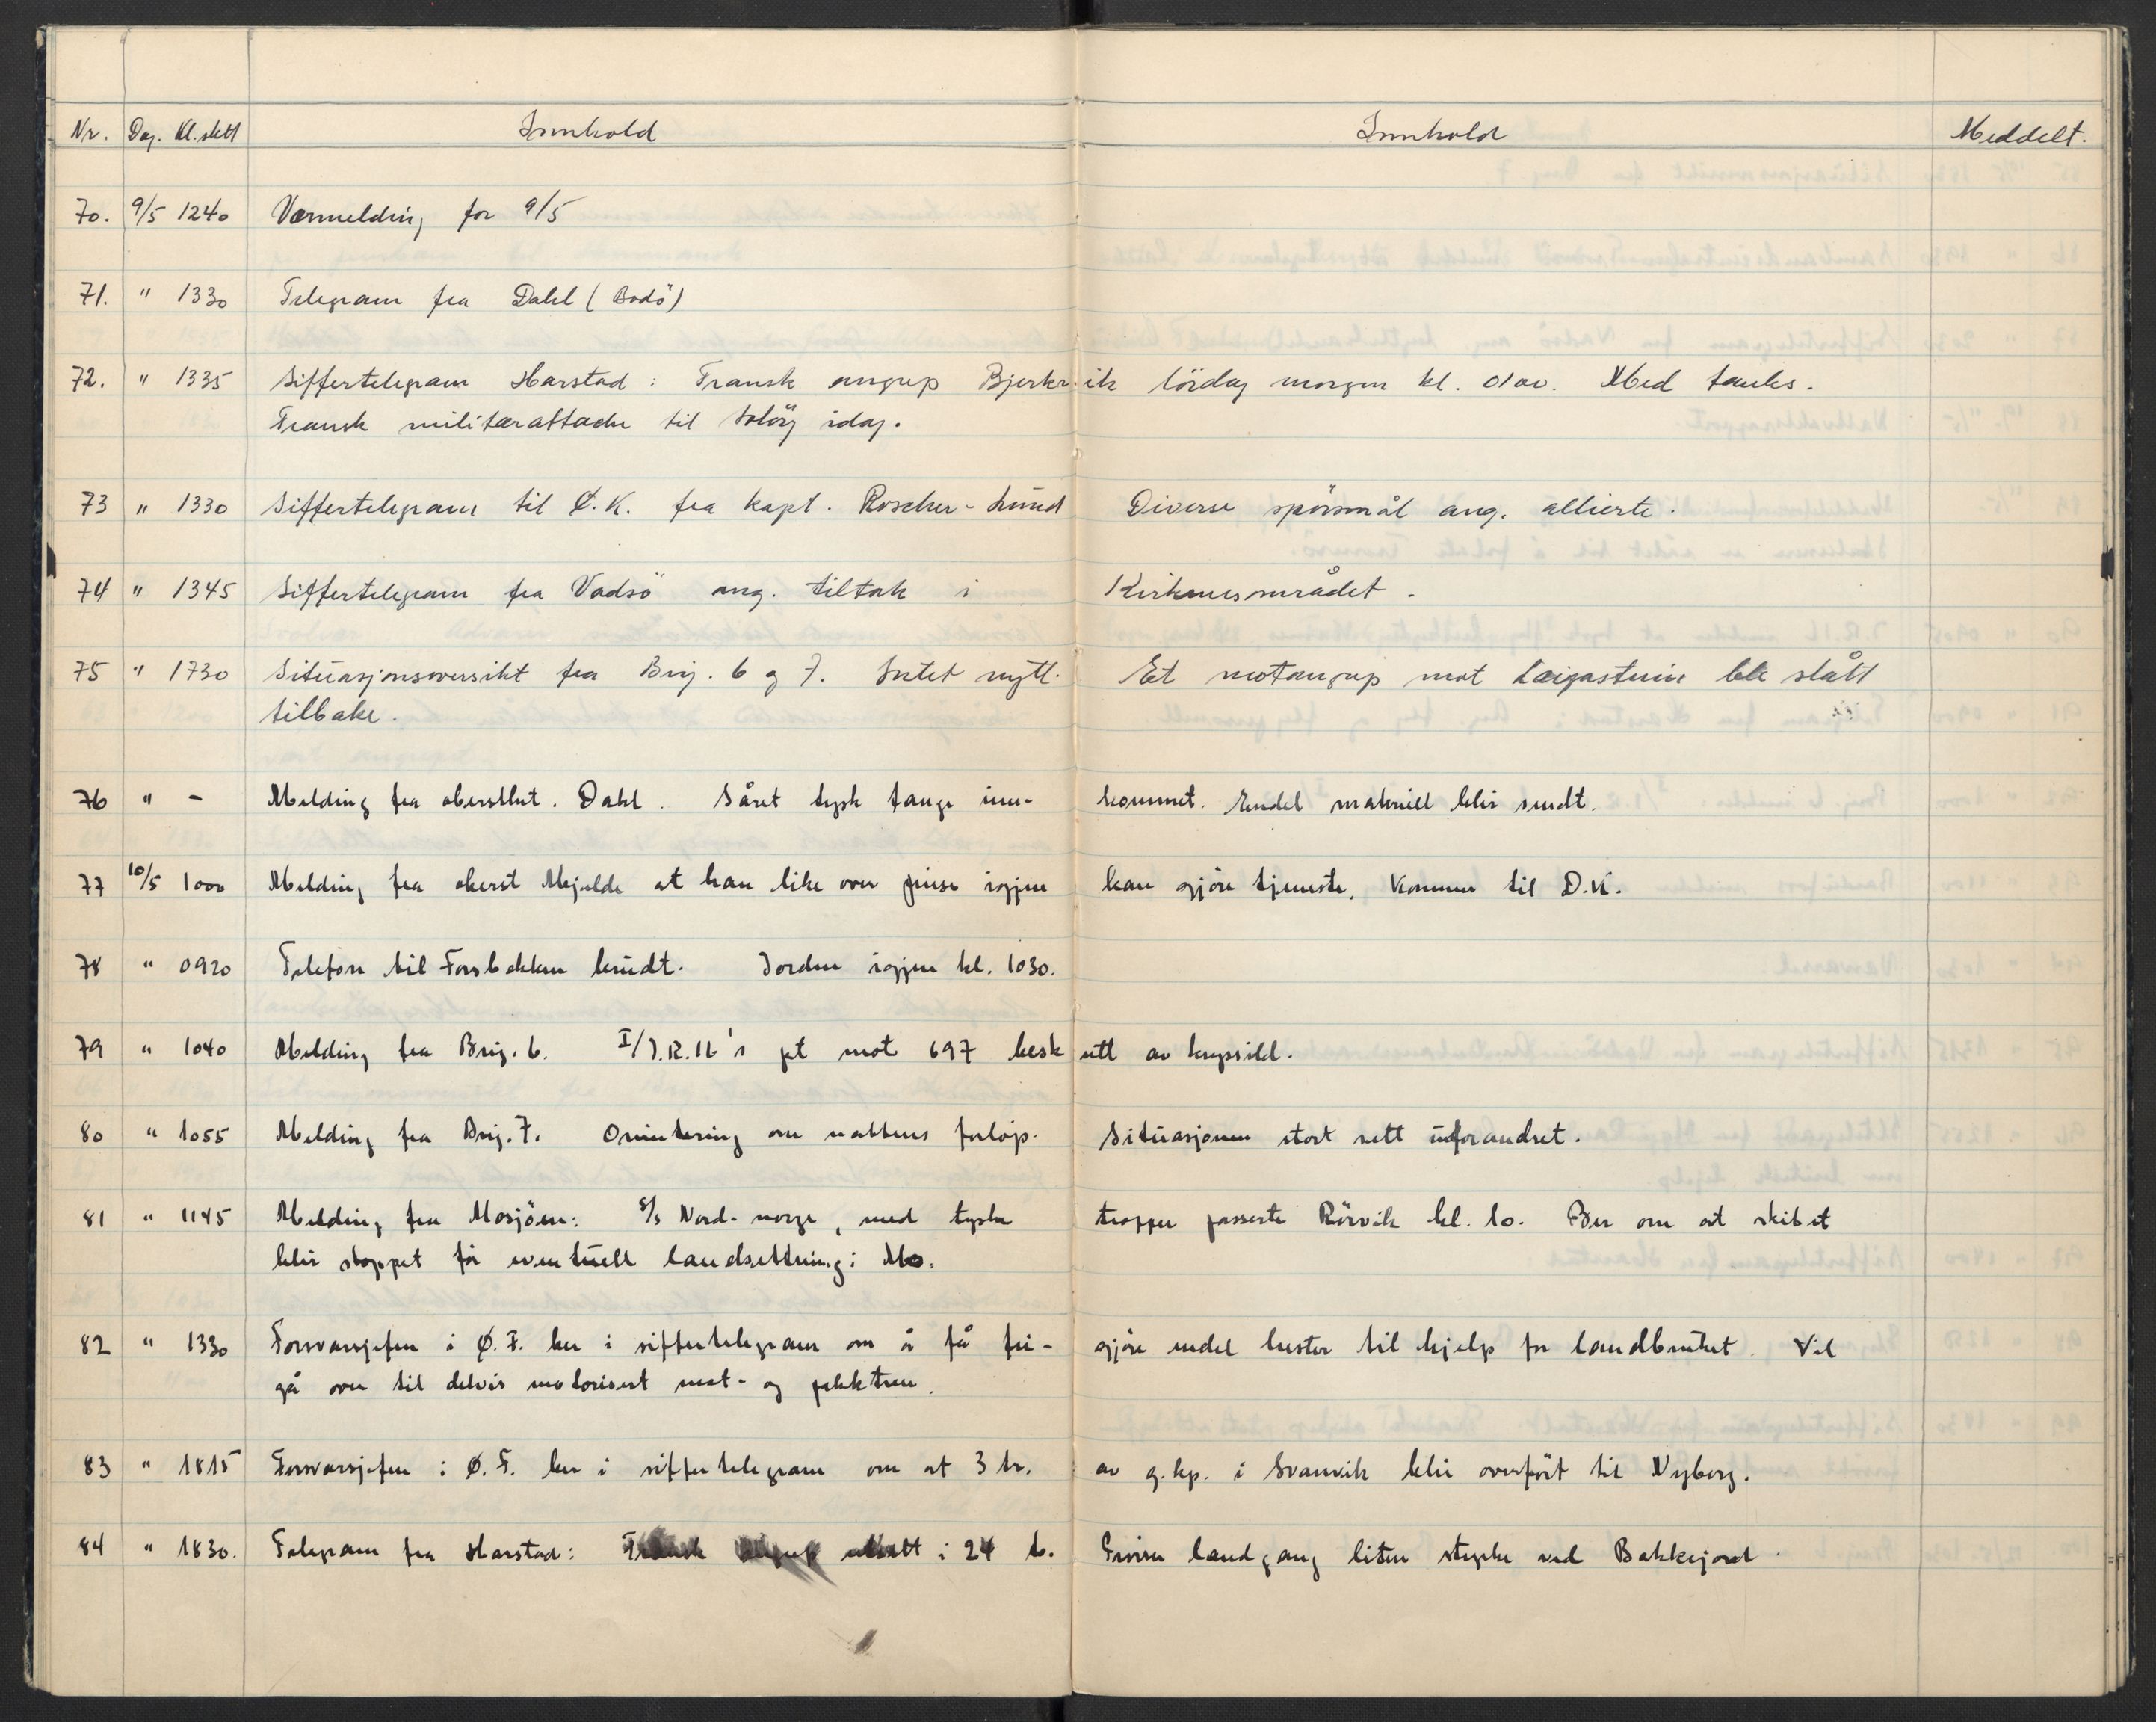 Nr. Dag. Kl.slett Innhold Innhold Meddelt.
70. 9/5 1240 Værmelding for 9/5
71. " 1330 Telegram fra Dahl (Bodö)
72. " 1335 Siffertelegram Harstad: Fransk angrep Bjerkvik lördag morgen kl. 0100. Med tanks.
Fransk militærattache til Solöy idag.
73 " 1330 Siffertelegram til Ø.K. fra kapt. Roscher-Lund Diverse spörsmål ang. allierte.
74 " 1345 Siffertelegram fra Vadsö ang. tiltak i Kirkenesområdet.
75 " 1730 Situasjonsoversikt fra Brig. 6 og 7. Intet nytt. Et motangrep mot Læigasteine ble slått
tilbake.
76 " - Melding fra oberstløt. Dahl. Såret tysk fange inn- kommet. Endel materiell blir sendt.
77 10/5 1000 Melding fra oberst Mjelde at han like over pinse igjen kan gjöre tjeneste. Kommer til D.K.
78 " 0920 Telefon til Forsbakken brudt. Iorden igjen kl. 1030.
79 " 1040 Melding fra Brig. 6. I/I.R.16's pt mot 697 beskutt av krepsild.
80 " 1055 Melding fra Brig. 7. Orientering om nattens forlöp. Situasjonen stort sett uforandret.
81 " 1145 Melding fra Mosjöen: S/s Nord-norge, med tyske tropper passerte Rörvik kl. 10. Ber om at skibet
blir stoppet för eventuell landsettning i Mo.
82 " 1330 Forsvarsjefen i Ø.F. ber i siffertelegram om å få fri- gjöre endel hester til hjelp for landbruket. Vil
gå over til delvis motorisert mat- og pakktren.
83 " 1815 Forsvarsjefen i Ø.F. ber i siffertelegram om at 3 tr. av g.kp. i Svanvik blir overfört til Nyborg.
84 " 1830. Telegram fra Harstad: Fransk angrep utsatt i 24 t. landgang liten styrke ved Bakkejord.